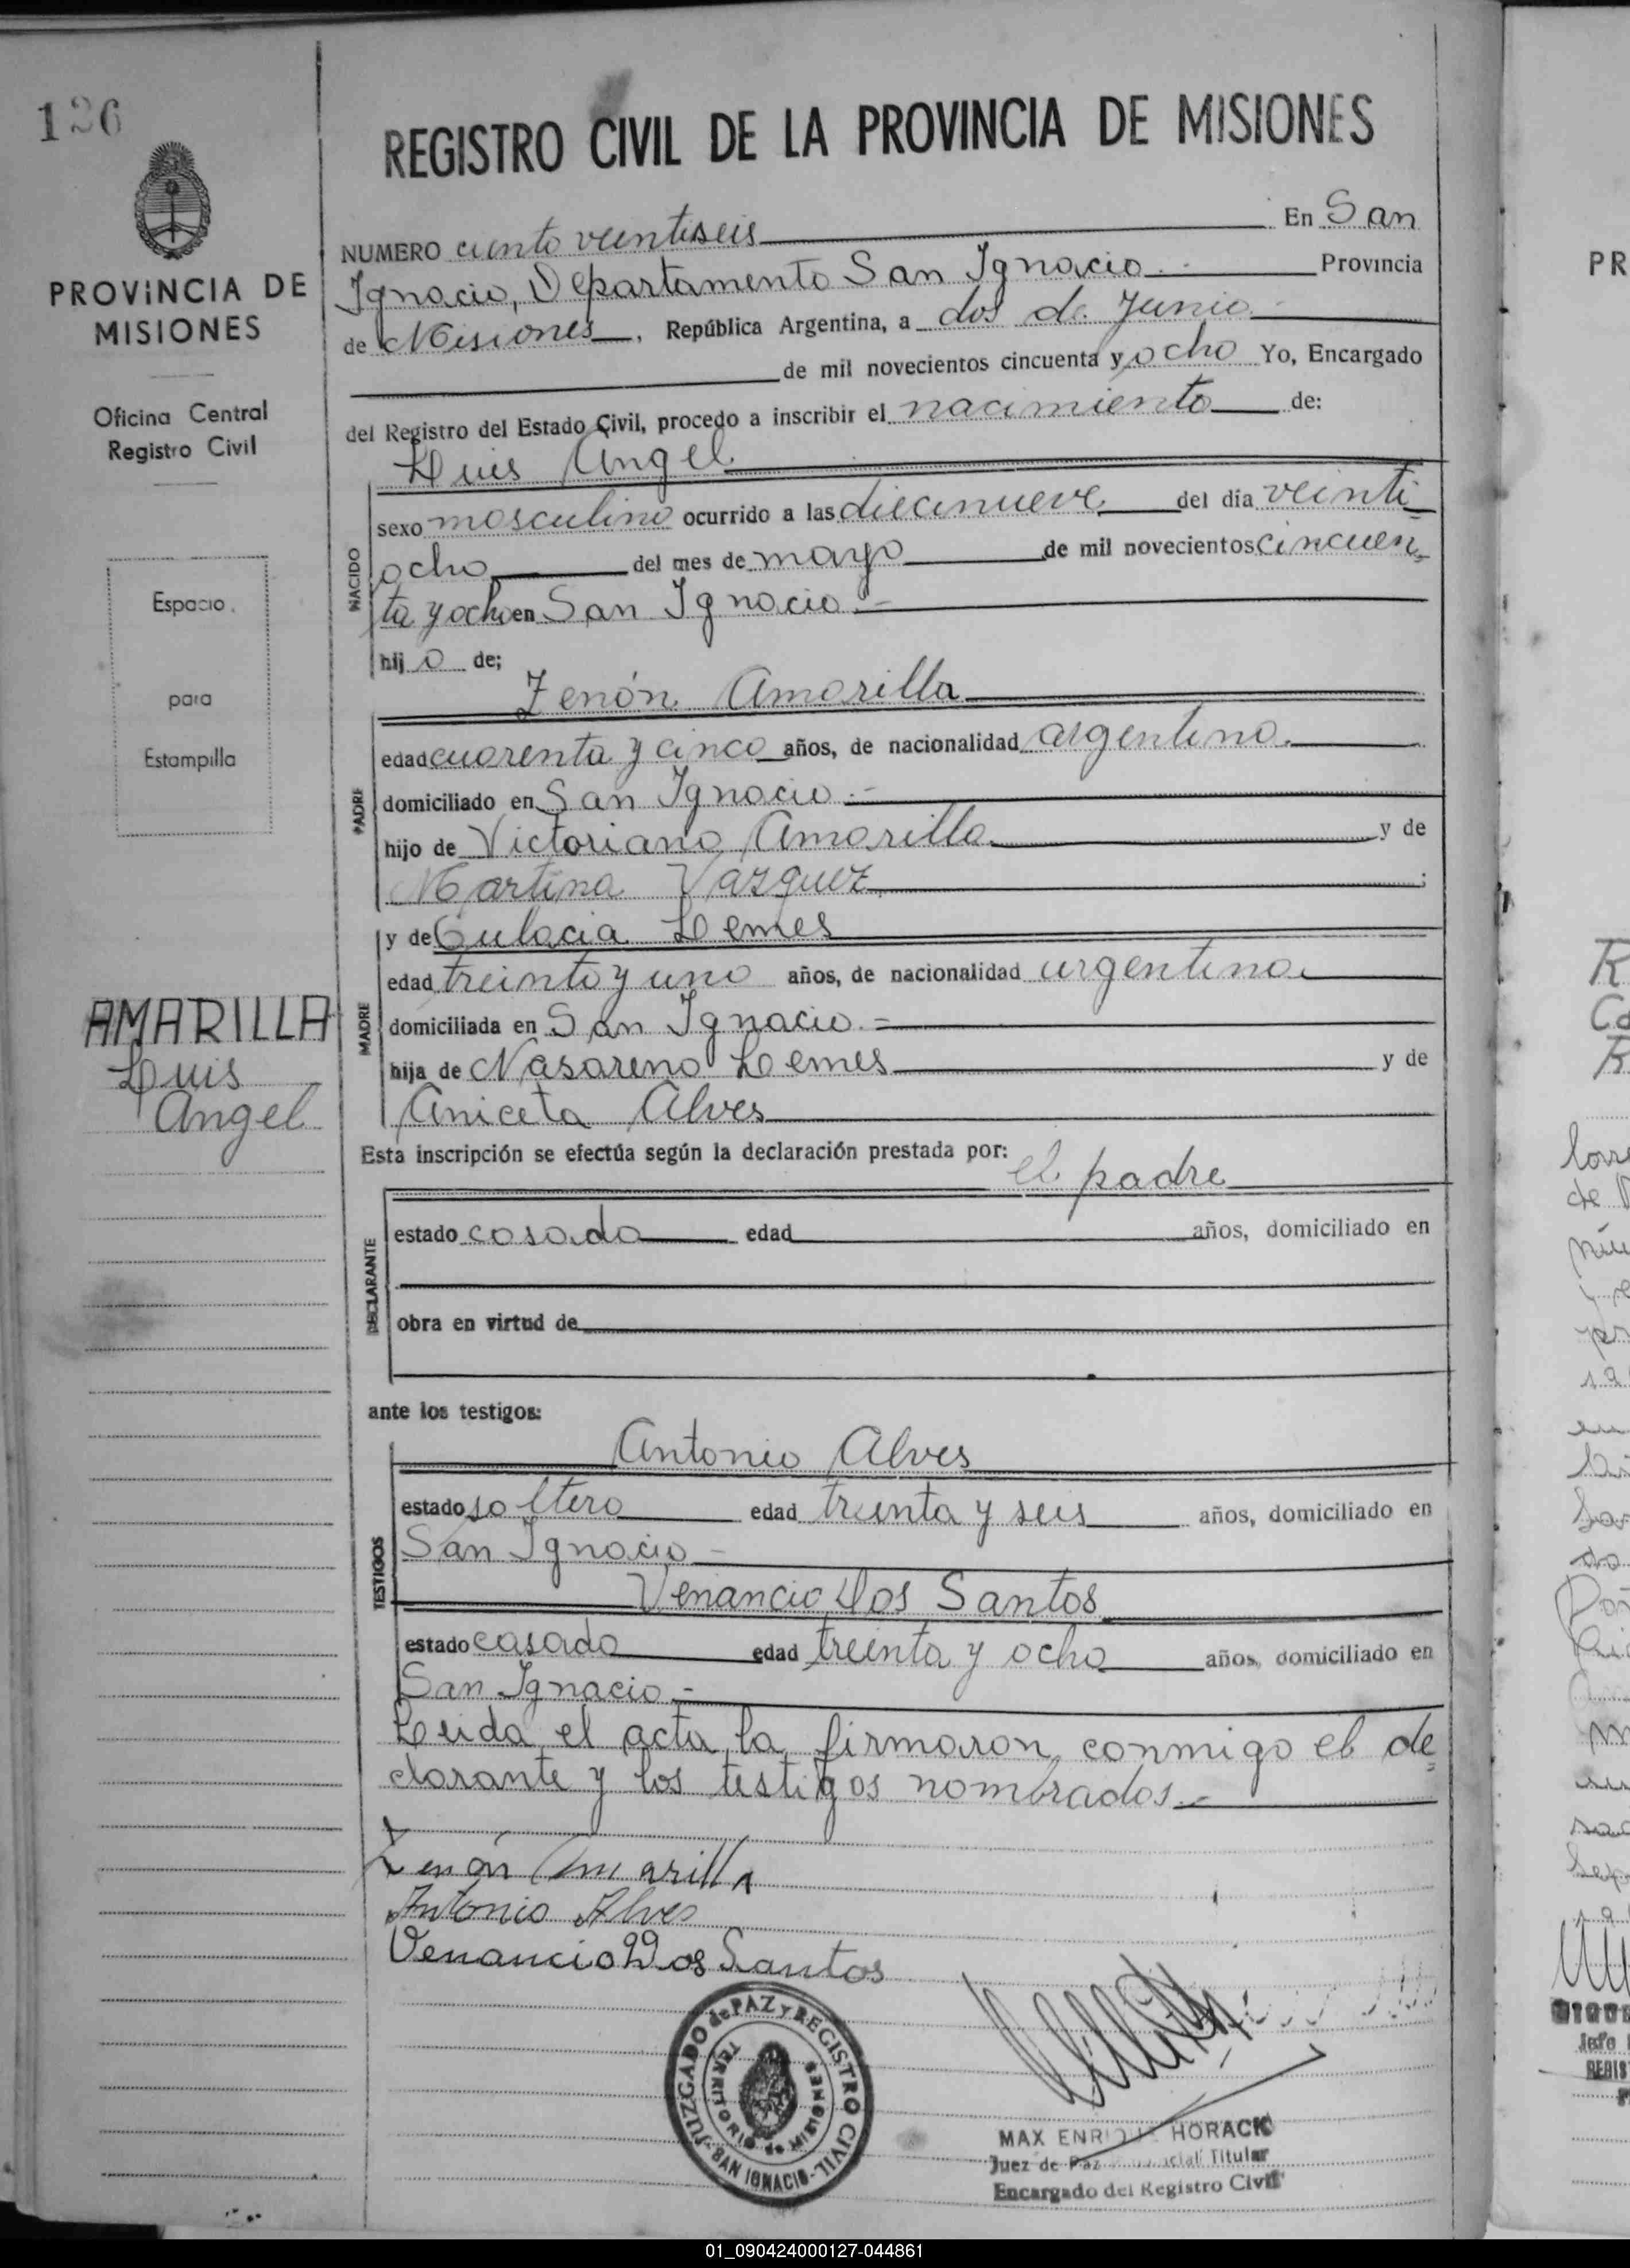 126
PROVINCIA DE
MISIONES
Oficina Central
Registro Civil
Espacio
para
Estampilla
AMARILLA
Luis
Angel
REGISTRO CIVIL DE LA PROVINCIA DE MISIONES
NUMERO ciento veintiseis En San
Ignacio, Departamento San Ignacio.- Provincia
de Misiones, República Argentina, a dos de Junio.-
de mil novecientos cincuenta y ocho Yo, Encargado
del Registro del Estado Civil, procedo a inscribir el nacimiento de:
Luis Angel
NACIDO
sexo masculino ocurrido a las diecinueve del dia veinti
ocho del mes de mayo de mil novecientos cincuen
ta y ocho en San Ignacio.-
hij o de;
Zenón Amarilla
PADRE
edad cuarenta y cinco años, de nacionalidad argentino.
domiciliado en San Ignacio.-
hijo de Victoriano Amarilla y de
Martina Vazquez ;
y de Eulacia Lemes
MADRE
edad treinta y uno años, de nacionalidad argentina
domiciliada en San Ignacio.=
hija de Nasareno Lemes y de
Aniceta Alves
Esta inscripción se efectúa según la declaración prestada por: el padre
DECLARANTE
estado casado edad años, domiciliado en
obra en virtud de
ante los testigos:
Antonio Alves
TESTIGOS
estado soltero edad treinta y seis años, domiciliado en
San Ignacio -
Venancio Dos Santos
estado casado edad treinta y ocho años, domiciliado en
San Ignacio.-
Leida el acta, la firmaron conmigo el de
clarante y los testigos nombrados.-
Zenón Amarilla
Antonio Alves
Venancio Dos Santos
JUZGADO de PAZ y REGISTRO CIVIL
TERRITORIO de MISIONES
SAN IGNACIO
MAX ENRIQUE HORACK
Juez de Paz Titular
Encargado del Registro Civil
01_090424000127-044861